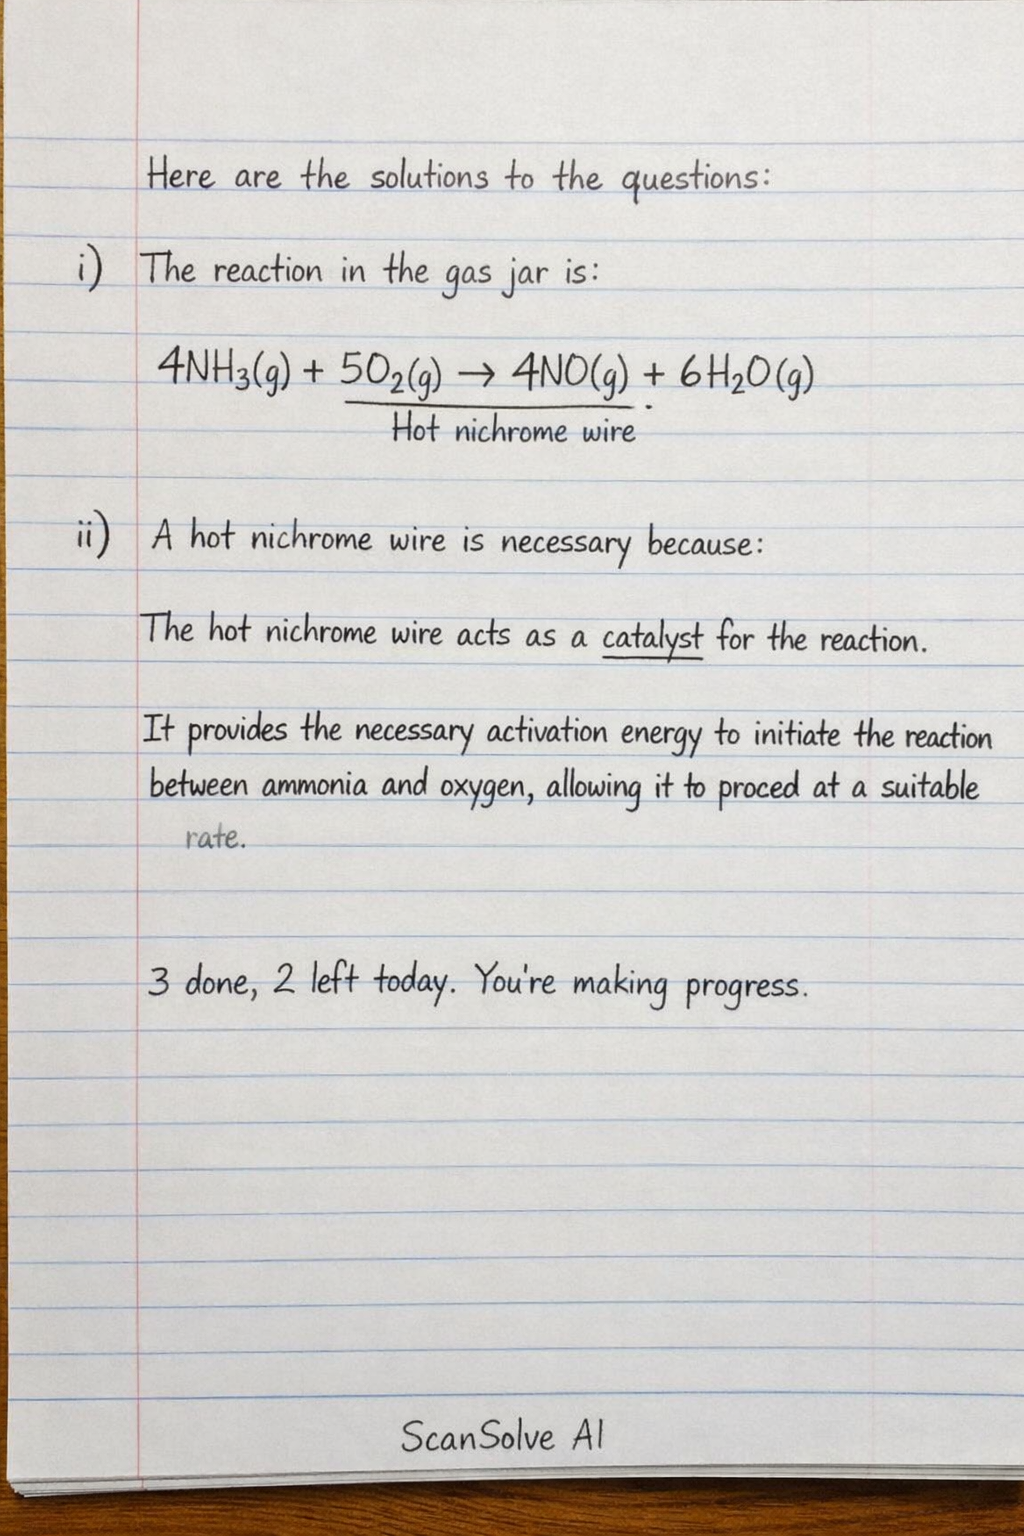 Here are the solutions to the questions:
i) The reaction in the gas jar is:
4NH₃(g) + 5O₂(g) → 4NO(g) + 6H₂O(g)
Hot nichrome wire
ii) A hot nichrome wire is necessary because:
The hot nichrome wire acts as a catalyst for the reaction.
It provides the necessary activation energy to initiate the reaction
between ammonia and oxygen, allowing it to proced at a suitable
rate.
3 done, 2 left today. You're making progress.
ScanSolve AI